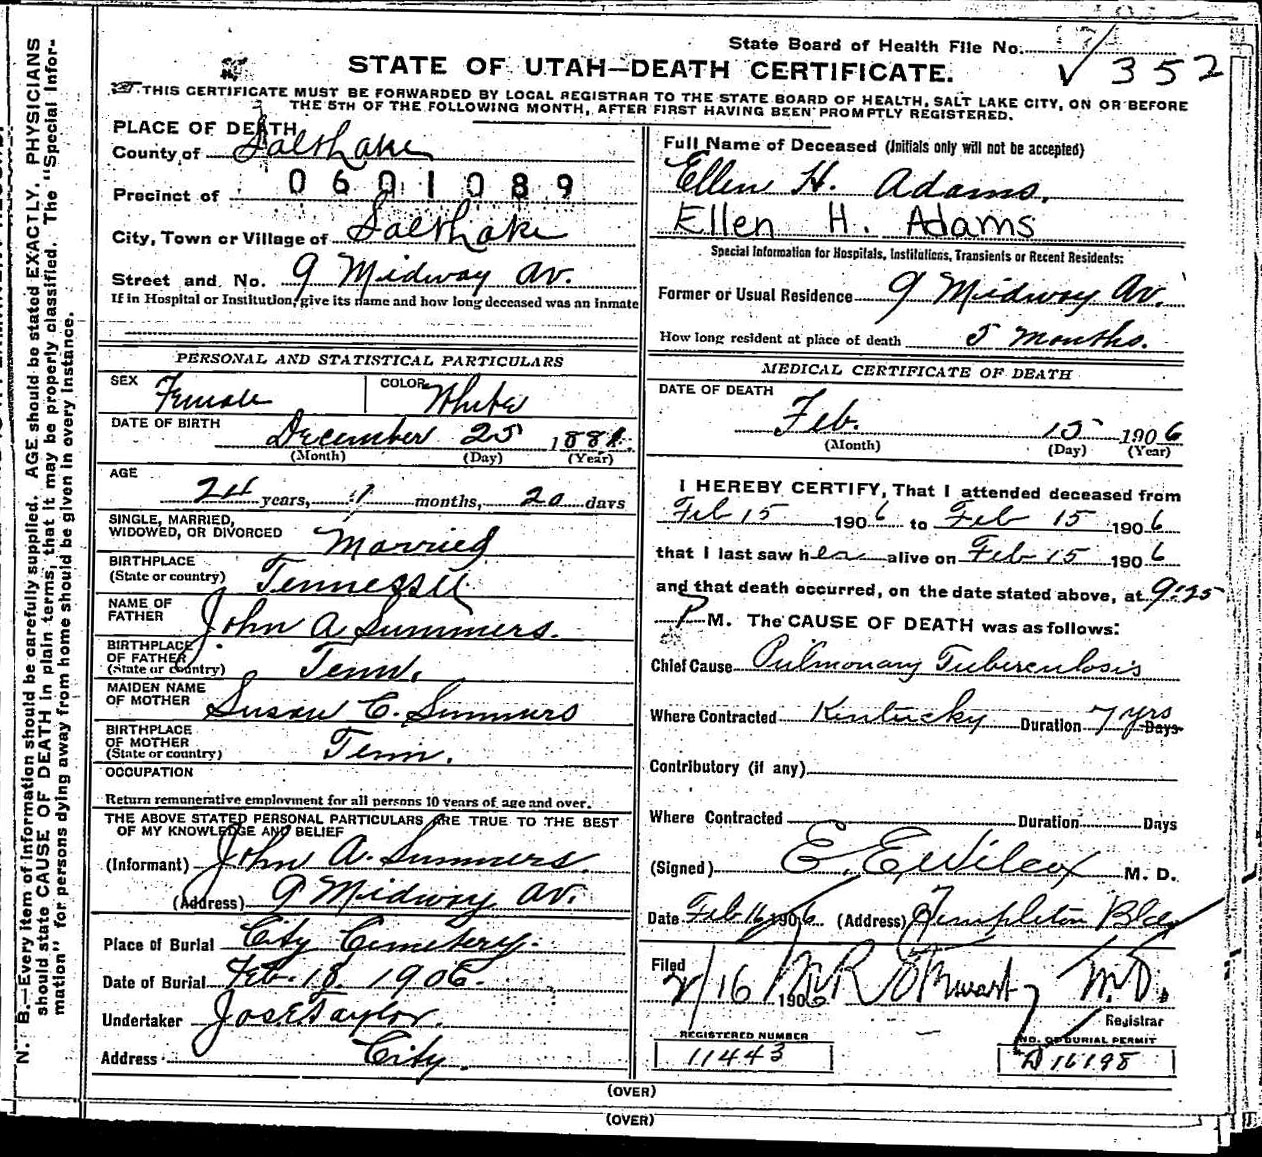 State Board of Health File No.
✓ 352
STATE OF UTAH—DEATH CERTIFICATE.
THIS CERTIFICATE MUST BE FORWARDED BY LOCAL REGISTRAR TO THE STATE BOARD OF HEALTH, SALT LAKE CITY, ON OR BEFORE
THE 5TH OF THE FOLLOWING MONTH, AFTER FIRST HAVING BEEN PROMPTLY REGISTERED.
PLACE OF DEATH
County of Salt Lake
Precinct of 0601089
City, Town or Village of Salt Lake
Street and No. 9 Midway Av.
If in Hospital or Institution, give its name and how long deceased was an inmate
PERSONAL AND STATISTICAL PARTICULARS
SEX Female COLOR White
DATE OF BIRTH December 25 1881
(Month) (Day) (Year)
AGE 24 years, 1 months, 20 days
SINGLE, MARRIED,
WIDOWED, OR DIVORCED Married
BIRTHPLACE
(State or country) Tennessee
NAME OF
FATHER John A Summers.
BIRTHPLACE
OF FATHER
(State or country) Tenn.
MAIDEN NAME
OF MOTHER Susan C. Summers
BIRTHPLACE
OF MOTHER
(State or country) Tenn.
OCCUPATION
Return remunerative employment for all persons 10 years of age and over.
THE ABOVE STATED PERSONAL PARTICULARS ARE TRUE TO THE BEST
OF MY KNOWLEDGE AND BELIEF
(Informant) John A. Summers.
(Address) 9 Midway Av.
Place of Burial City Cemetery.
Date of Burial Feb. 18. 1906.
Undertaker Jos E Taylor.
Address City.
Full Name of Deceased (Initials only will not be accepted)
Ellen H. Adams.
Ellen H. Adams
Special Information for Hospitals, Institutions, Transients or Recent Residents:
Former or Usual Residence 9 Midway Av.
How long resident at place of death 5 months.
MEDICAL CERTIFICATE OF DEATH
DATE OF DEATH
Feb. 15 1906
(Month) (Day) (Year)
I HEREBY CERTIFY, That I attended deceased from
Feb 15 1906 to Feb 15 1906
that I last saw her alive on Feb 15 1906
and that death occurred, on the date stated above, at 9:25
P M. The CAUSE OF DEATH was as follows:
Chief Cause Pulmonary Tuberculosis
Where Contracted Kentucky Duration 7 yrs Days
Contributory (if any)
Where Contracted Duration Days
(Signed) E. E. Wilcox M. D.
Date Feb 16 1906 (Address) Templeton Bldg
Filed
2/16 1906 M R Stewart M.D.
Registrar
REGISTERED NUMBER
11443
NO. OF BURIAL PERMIT
A 16198
(OVER)
(OVER)
N. B.—Every item of information should be carefully supplied. AGE should be stated EXACTLY. PHYSICIANS
should state CAUSE OF DEATH in plain terms, that it may be properly classified. The "Special Infor-
mation" for persons dying away from home should be given in every instance.